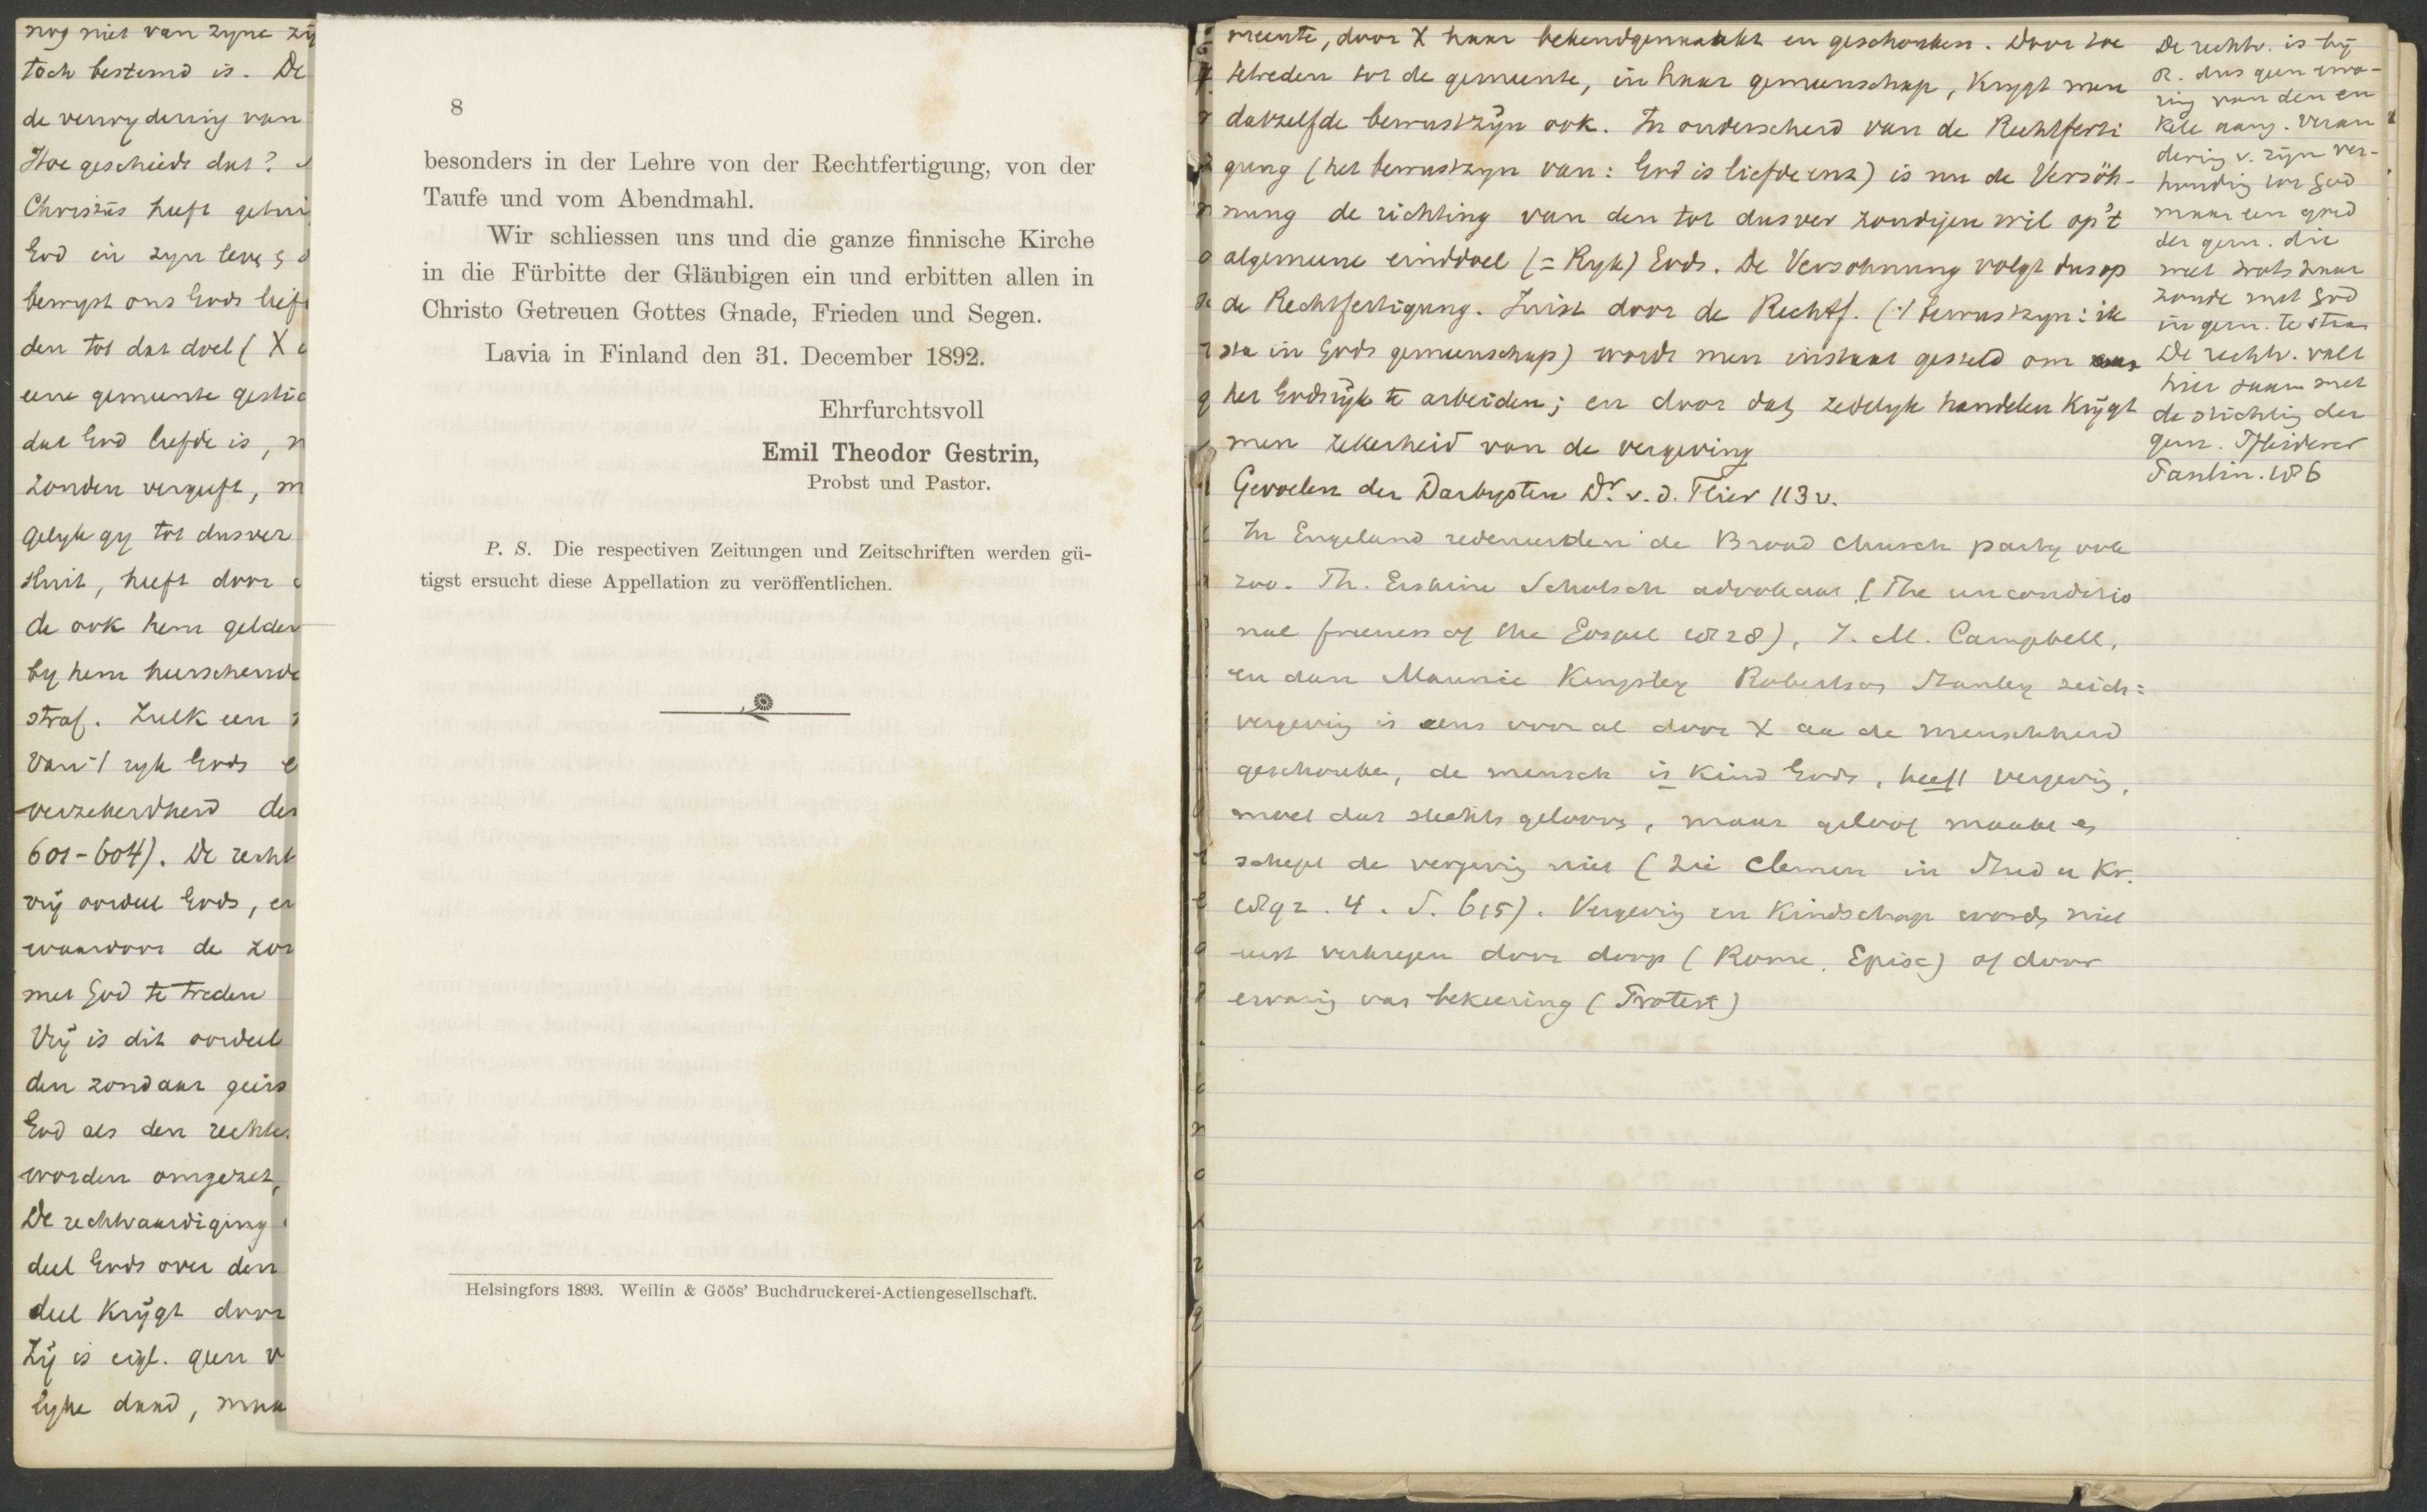 nog niet van zyne zy
toch bestemd is. De
de verwydering van
Hoe geschiedt dat?
Christus heeft
God in zyn leven
bewyst ons Gods lief
den tot dat doel (X
eene gemeente gestic
dat God liefde is,
zonden vergeeft, m
gelyk gy tot dusver
sluit, heeft door
de ook hem gelden
by hem heerschende
straf. Zulk een
van 't ryk Gods
verzekerdheid der
601-604). De recht
vrij oordeel Gods, en
waardoor de zon
met God te treden
Vrij is dit oordeel
den zondaar
God als den rechter
worden omgezet,
De rechtvaardiging
deel Gods over den
deel krijgt door
Zij is eigl. geen v
lyke daad, maa
8
besonders in der Lehre von der Rechtfertigung, von der
Taufe und vom Abendmahl.
Wir schliessen uns und die ganze finnische Kirche
in die Fürbitte der Gläubigen ein und erbitten allen in
Christo Getreuen Gottes Gnade, Frieden und Segen.
Lavia in Finland den 31. December 1892.
Ehrfurchtsvoll
Emil Theodor Gestrin,
Probst und Pastor.
P. S. Die respectiven Zeitungen und Zeitschriften werden gü-
tigst ersucht diese Appellation zu veröffentlichen.
Helsingfors 1893. Weilin & Göös' Buchdruckerei-Actiengesellschaft.
meente, door X haar bekendgemaakt en geschonken. Door toe
tetreden tot de gemeente, in haar gemeenschap, krygt men
datzelfde bewustzijn ook. In onderscheid van de Rechtferti
gung (het bewustzyn van: God is liefde enz) is nu de Versöh-
nung de richting van den tot dusver zondigen wil op 't
algemeene einddoel (= Ryk) Gods. De Versohnung volgt dus op
de Rechtfertigung. Juist door de Rechtf. ('t bewustzyn: ik
sta in Gods gemeenschap) wordt men instaat gesteld om aan
het Godsrijk te arbeiden; en door dat zedelyk handelen krijgt
men zekerheid van de vergeving
Gevoelen der Darbysten Dr. v. d. Flier 113v.
In Engeland redeneerden de Broad Church party ook
zoo. Th. Erskine Schotsch advokaat (The unconditio
nal freeness of the Gospel 1828), J. M. Campbell,
en dan Maurice Kingsley Robertson Stanley
vergeving is eens vooral door X aan de menschheid
geschonken, de mensch is kind Gods, heeft vergeving,
moet dat slechts gelooven, maar geloof maakt en
schept de vergeving niet (zie Clemen in Stud u Kr.
1892. 4. S. 615). Vergeving en kindschap wordt niet
eerst verkregen door doop (Rome, Episc) of door
ervaring van bekeering (Protest)
De rechtv. is bij
R. dus geen erva-
ring van den en
kele aang. veran
dering v. zijn ver-
houding tot God
maar een goed
der gem. die
met trots haar
zonde met God
in gem. te staan
De rechtv. valt
hier saam met
de stichting der
gem. Pfleiderer
Paulin. 186